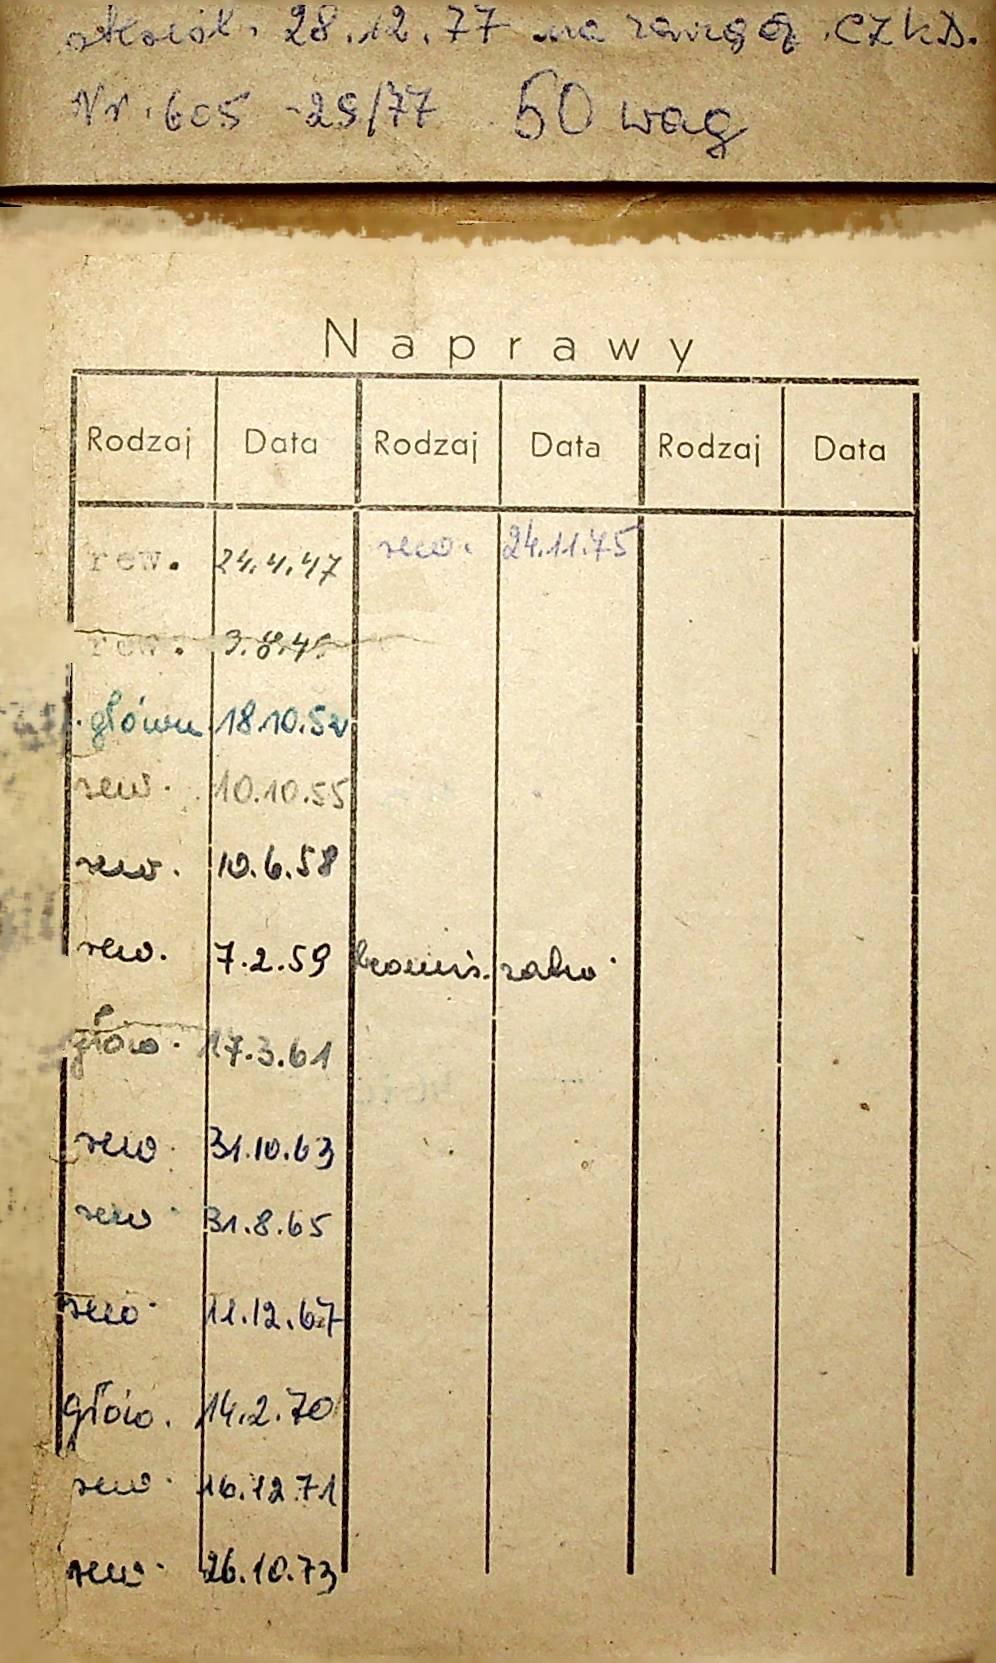 28.12.77 na CZKD.
Nr. 605 -29/77 50 wag
Naprawy
Rodzaj Data Rodzaj Data Rodzaj Data
rew. 24.4.47 rew. 24.11.75
rew. 3.8.49
główn 18.10.52
rew. 10.10.55
rew. 10.6.58
rew. 7.2.59
głów. 17.3.61
rew. 31.10.63
rew. 31.8.65
rew. 11.12.67
głów. 14.2.70
rew. 16.12.71
rew. 26.10.73